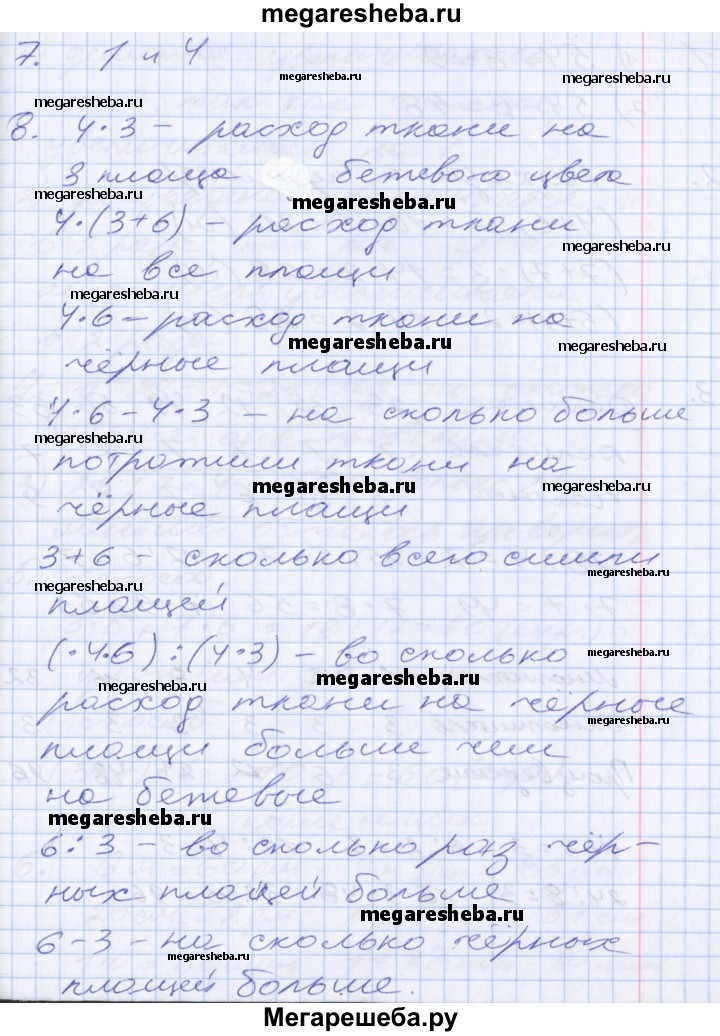 megaresheba.ru
7. 1 и 4
megaresheba.ru
megaresheba.ru
8. 4·3 – расход ткани на
3 плаща бежевого цвета
megaresheba.ru
megaresheba.ru
4·(3+6) – расход ткани
megaresheba.ru
на все плащи
megaresheba.ru
4·6 – расход ткани на
megaresheba.ru
megaresheba.ru
чёрные плащи
4·6 – 4·3 – на сколько больше
megaresheba.ru
потратили ткани на
megaresheba.ru
megaresheba.ru
чёрные плащи
3+6 – сколько всего сшили
megaresheba.ru
megaresheba.ru
плащей
(·4·6) : (4·3) – во сколько
megaresheba.ru
megaresheba.ru
расход ткани на чёрные
megaresheba.ru
плащи больше чем
на бежевые
megaresheba.ru
6 : 3 – во сколько раз чёр–
megaresheba.ru
ных плащей больше
megaresheba.ru
6 – 3 – на сколько чёрных
megaresheba.ru
megaresheba.ru
плащей больше.
Мегарешеба.ру